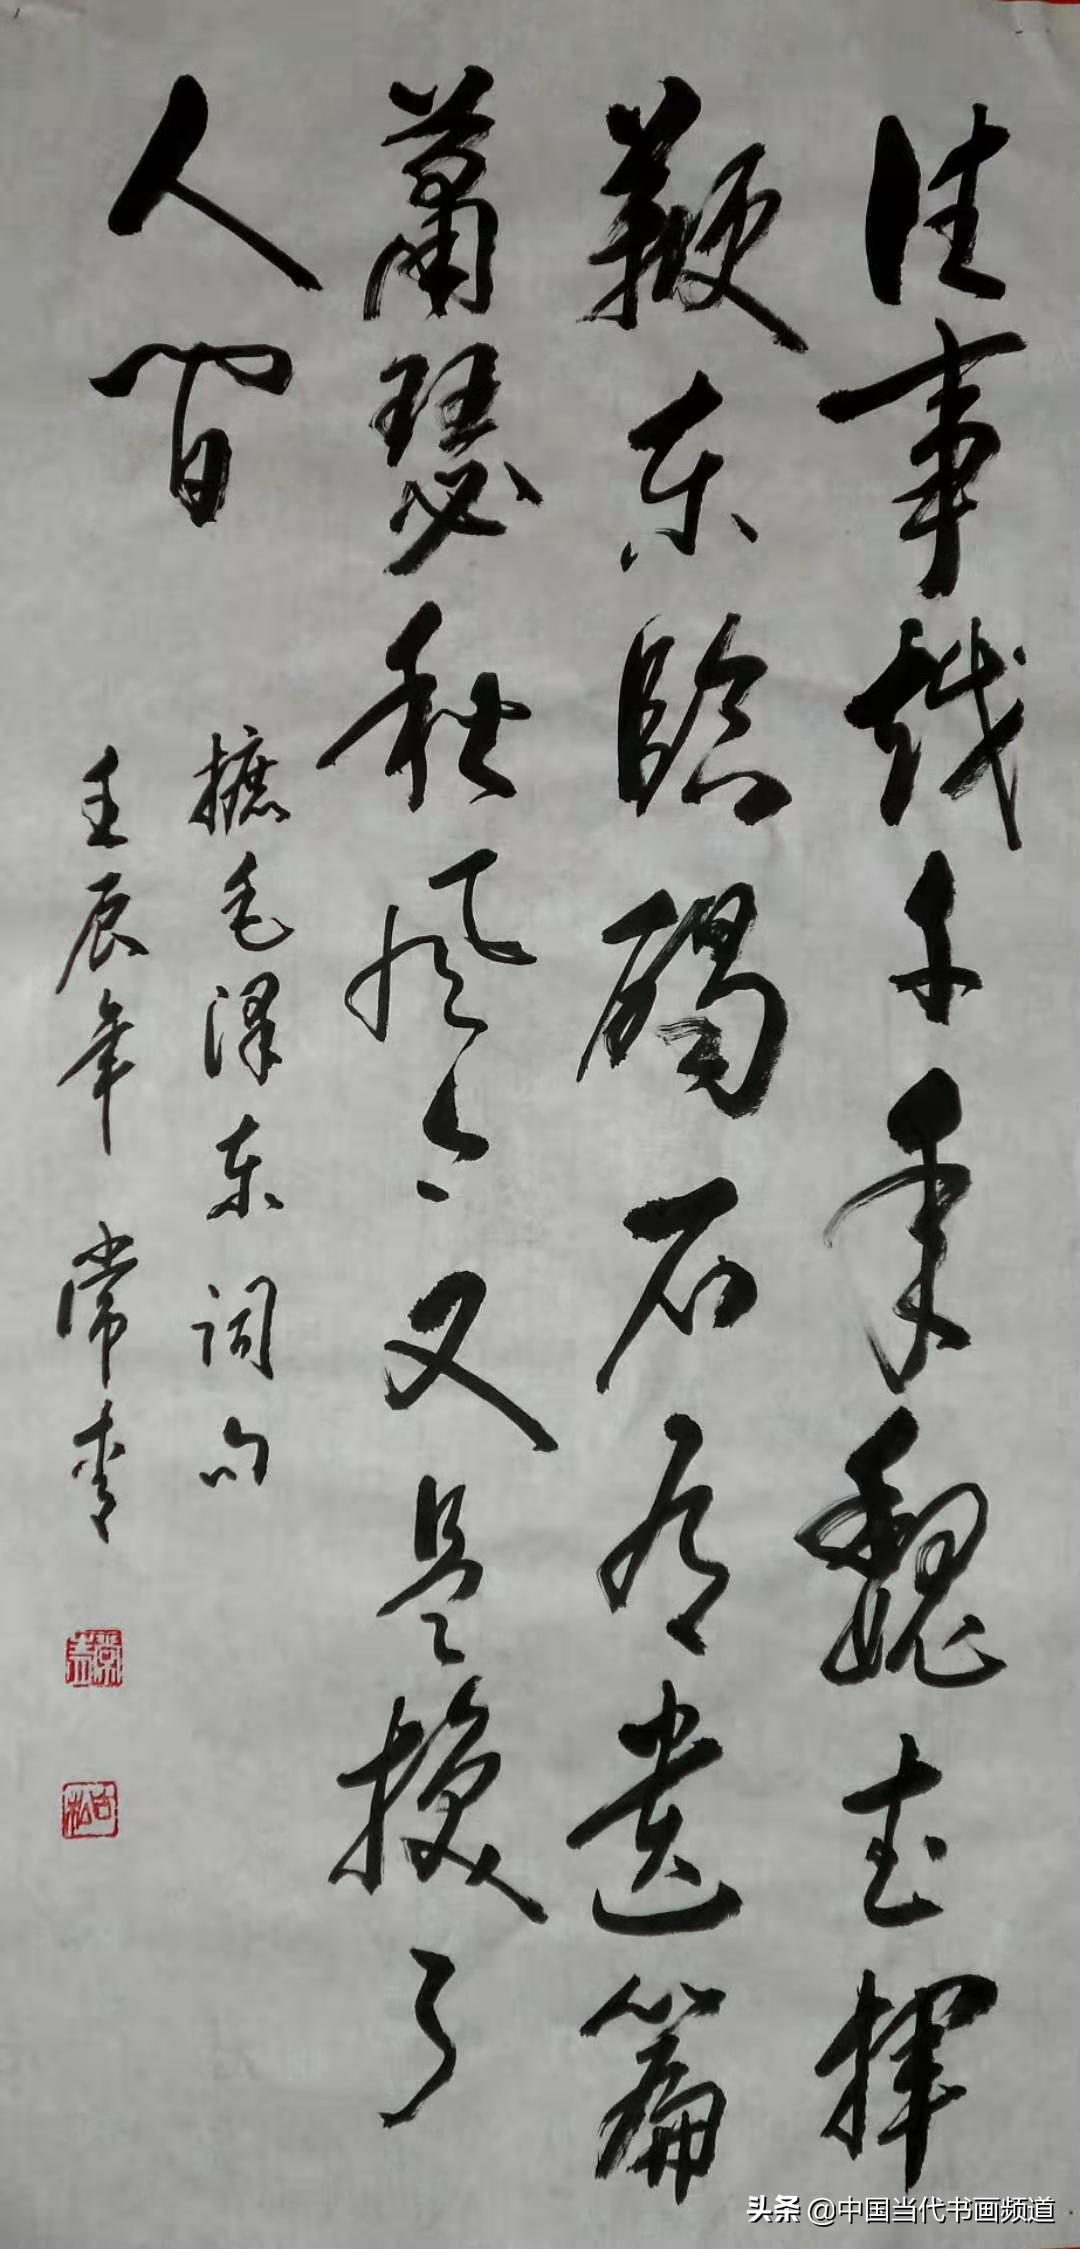 往事越千年魏武揮
鞭东臨碣石有遗篇
蕭瑟秋风今又是換了
人间
摭毛泽东词句
壬辰年 常青
头条 @中国当代书画频道